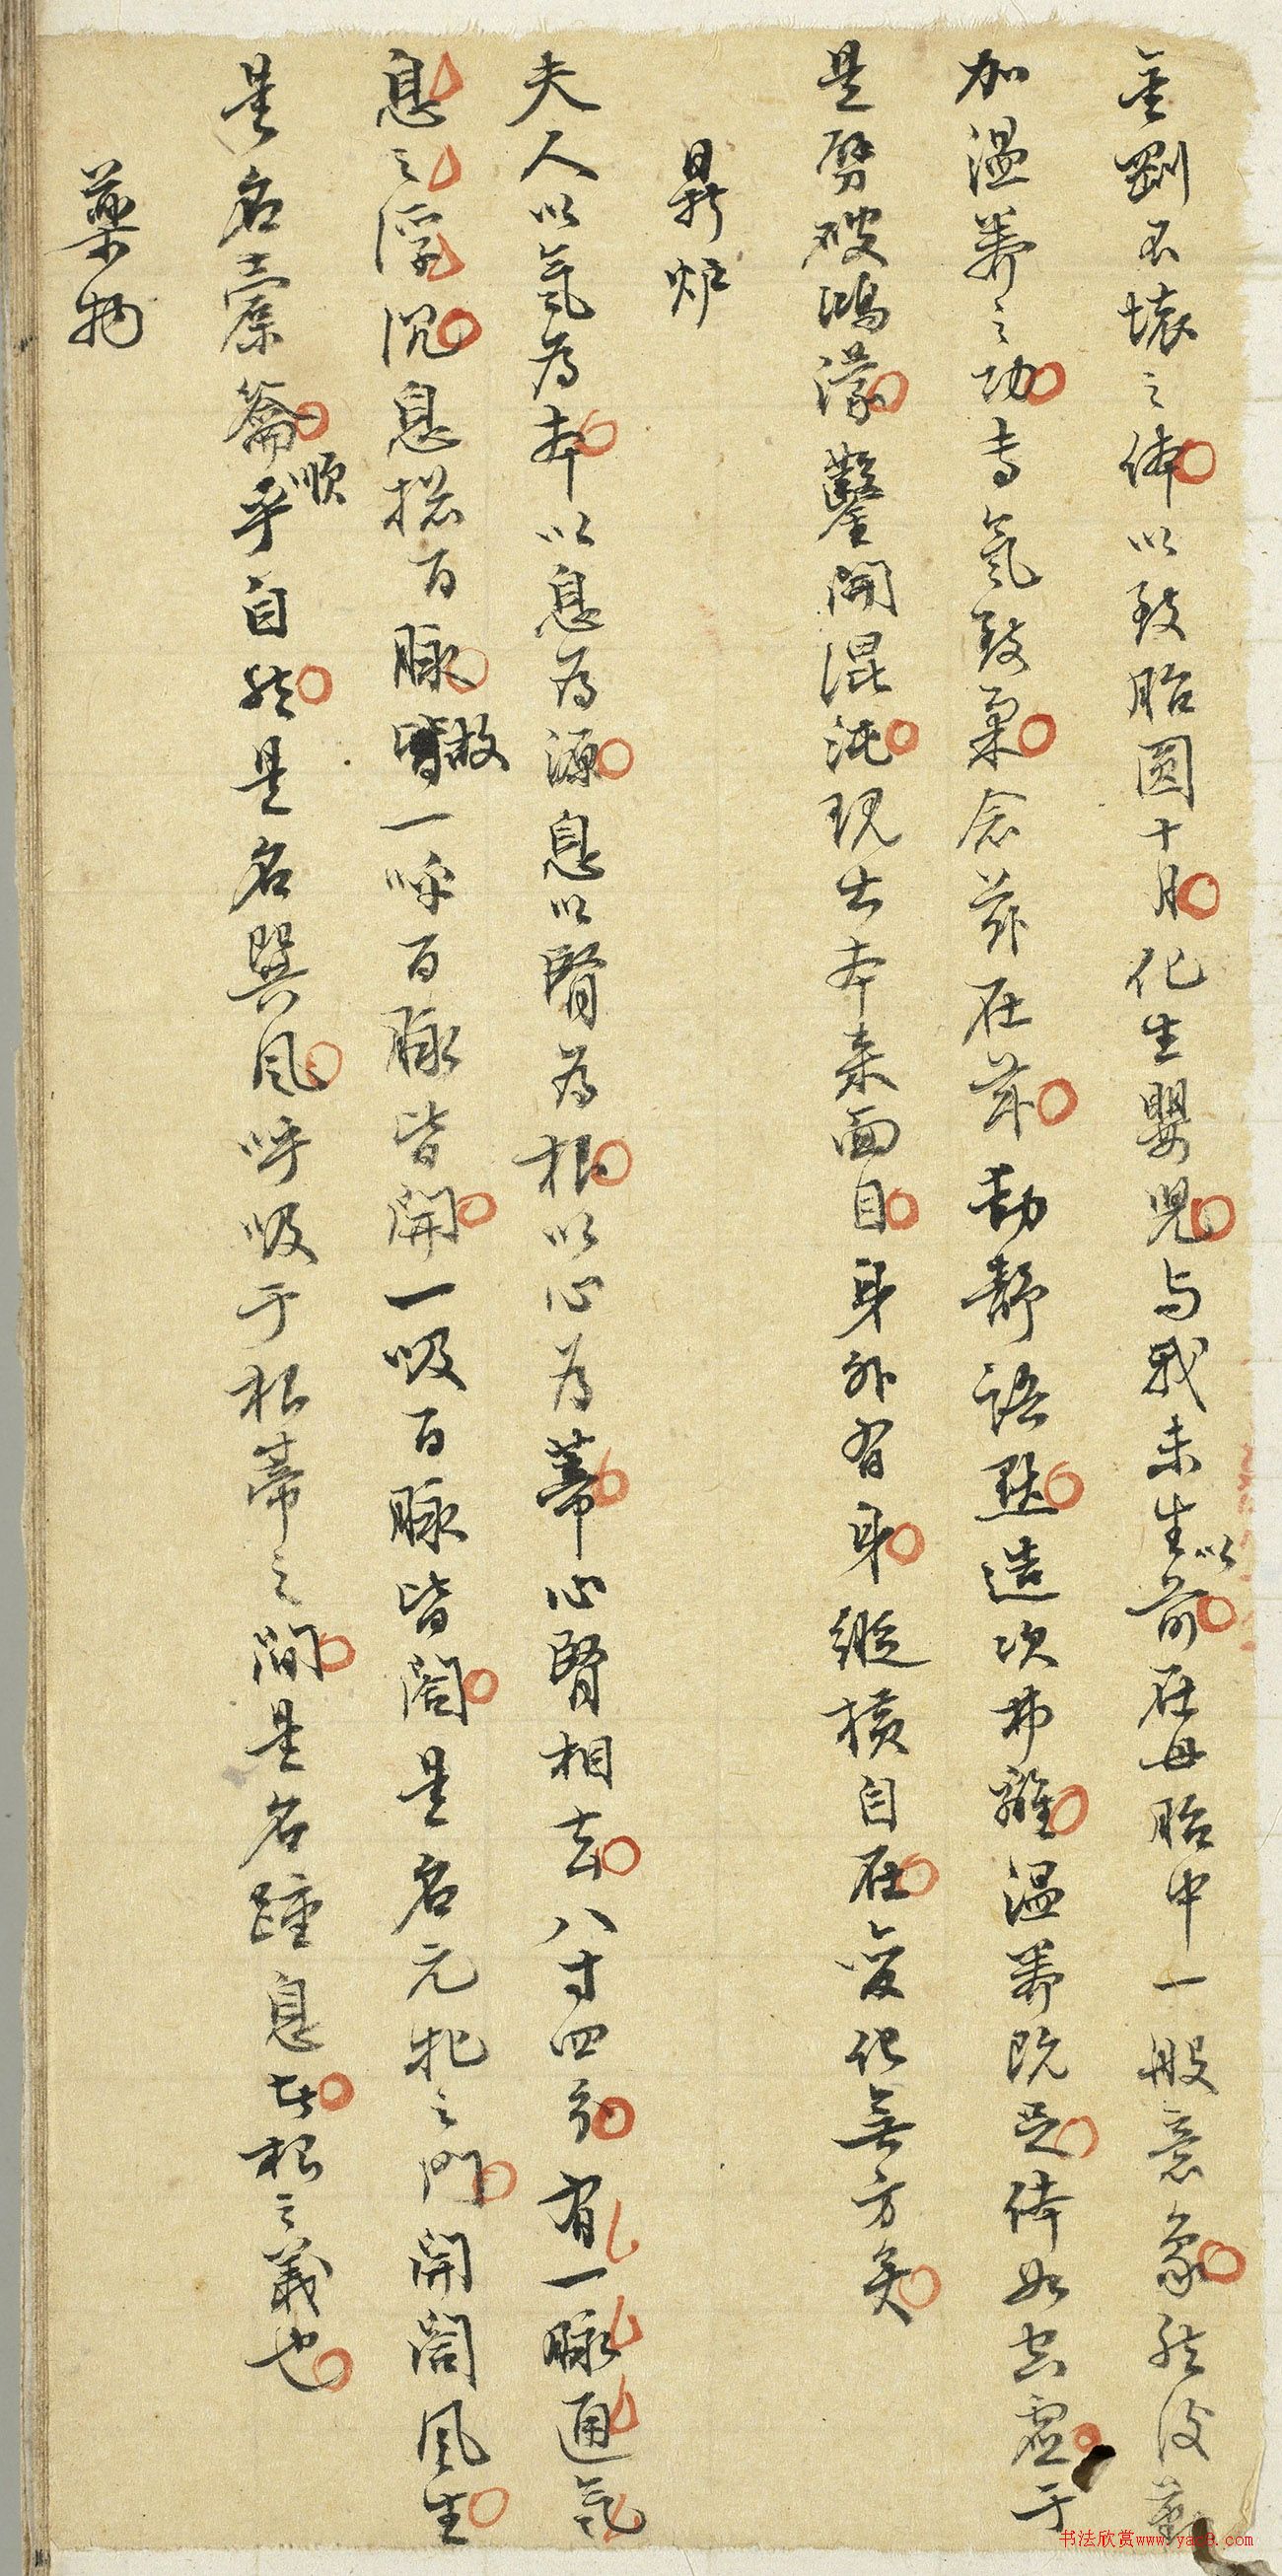 金剛不壞之体以致胎圓十月化生嬰児与我未生以前在母胎中一般意象然後
加温養之功专氣致柔念茲在茲動静語默造次弗離温養既足体如太虚于
是劈破鴻濛鑿開混沌現出本来面目身外有身縱横自在变化無方矣
鼎炉
夫人以氣為本以息為源息以腎為根以心為蒂心腎相去八寸四分有一脉通氣
息之浮沉息摠百脉故一呼百脉皆開一吸百脉皆闔是名元牝之門開闔風生
是名橐籥順乎自然是名巽風呼吸于根蒂之間是名踵息此根之義也
藥物
书法欣赏www.yac8.com